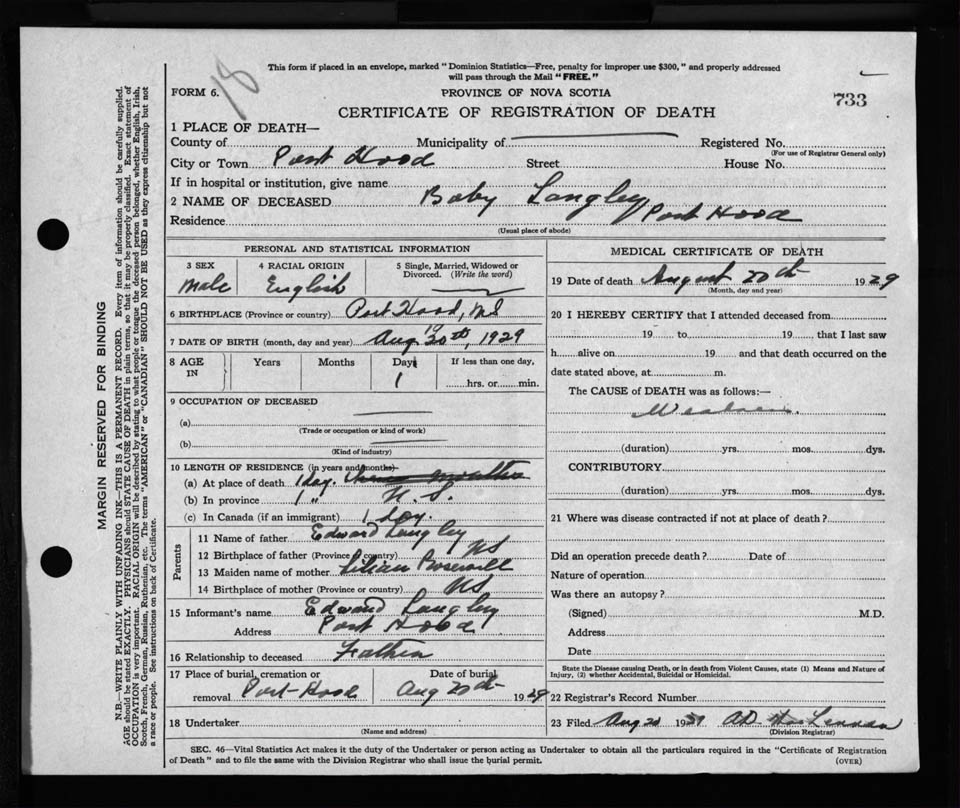 This form if placed in an envelope, marked "Dominion Statistics—Free, penalty for improper use $300," and properly addressed
will pass through the Mail "FREE."
18
FORM 6.
PROVINCE OF NOVA SCOTIA
733
CERTIFICATE OF REGISTRATION OF DEATH
1 PLACE OF DEATH—
County of Municipality of Registered No.
(For use of Registrar General only)
City or Town Port Hood Street House No.
If in hospital or institution, give name
2 NAME OF DECEASED Baby Langley
Residence Port Hood
(Usual place of abode)
PERSONAL AND STATISTICAL INFORMATION
3 SEX 4 RACIAL ORIGIN 5 Single, Married, Widowed or
Divorced. (Write the word)
Male English
6 BIRTHPLACE (Province or country) Port Hood, NS
7 DATE OF BIRTH (month, day and year) Aug 19 20th, 1929
8 AGE IN Years Months Days If less than one day,
1 hrs. or min.
9 OCCUPATION OF DECEASED
(a)
(Trade or occupation or kind of work)
(b)
(Kind of industry)
10 LENGTH OF RESIDENCE (in years and months)
(a) At place of death 1 day.
(b) In province 1 " N.S.
(c) In Canada (if an immigrant) 1 day.
Parents
11 Name of father Edward Langley
12 Birthplace of father (Province or country) NS
13 Maiden name of mother Lilian
14 Birthplace of mother (Province or country) NS
15 Informant's name Edward Langley
Address Port Hood
16 Relationship to deceased Father
17 Place of burial, cremation or Date of burial
removal Port-Hood Aug 20th 1929
18 Undertaker
(Name and address)
MEDICAL CERTIFICATE OF DEATH
19 Date of death August 20th 1929
(Month, day and year)
20 I HEREBY CERTIFY that I attended deceased from
19 to 19, that I last saw
h alive on 19 and that death occurred on the
date stated above, at m.
The CAUSE of DEATH was as follows:—
Weakness.
(duration) yrs. mos. dys.
CONTRIBUTORY
(duration) yrs. mos. dys.
21 Where was disease contracted if not at place of death?
Did an operation precede death? Date of
Nature of operation
Was there an autopsy?
(Signed) M.D.
Address
Date
State the Disease causing Death, or in death from Violent Causes, state (1) Means and Nature of
Injury, (2) whether Accidental, Suicidal or Homicidal.
22 Registrar's Record Number
23 Filed Aug 20 1929 McLennan
(Division Registrar)
SEC. 46—Vital Statistics Act makes it the duty of the Undertaker or person acting as Undertaker to obtain all the particulars required in the "Certificate of Registration
of Death" and to file the same with the Division Registrar who shall issue the burial permit.
(OVER)
MARGIN RESERVED FOR BINDING
N.B.—WRITE PLAINLY WITH UNFADING INK—THIS IS A PERMANENT RECORD. Every item of information should be carefully supplied.
AGE should be stated EXACTLY. PHYSICIANS should STATE CAUSE OF DEATH in plain terms, so that it may be properly classified. Exact statement of
OCCUPATION is very important. RACIAL ORIGIN will be described by stating to what people or tongue the deceased person belonged, whether English, Irish,
Scotch, French, German, Russian, Ruthenian, etc. The terms "AMERICAN" or "CANADIAN" SHOULD NOT BE USED as they express citizenship but not
a race or people. See instructions on back of Certificate.